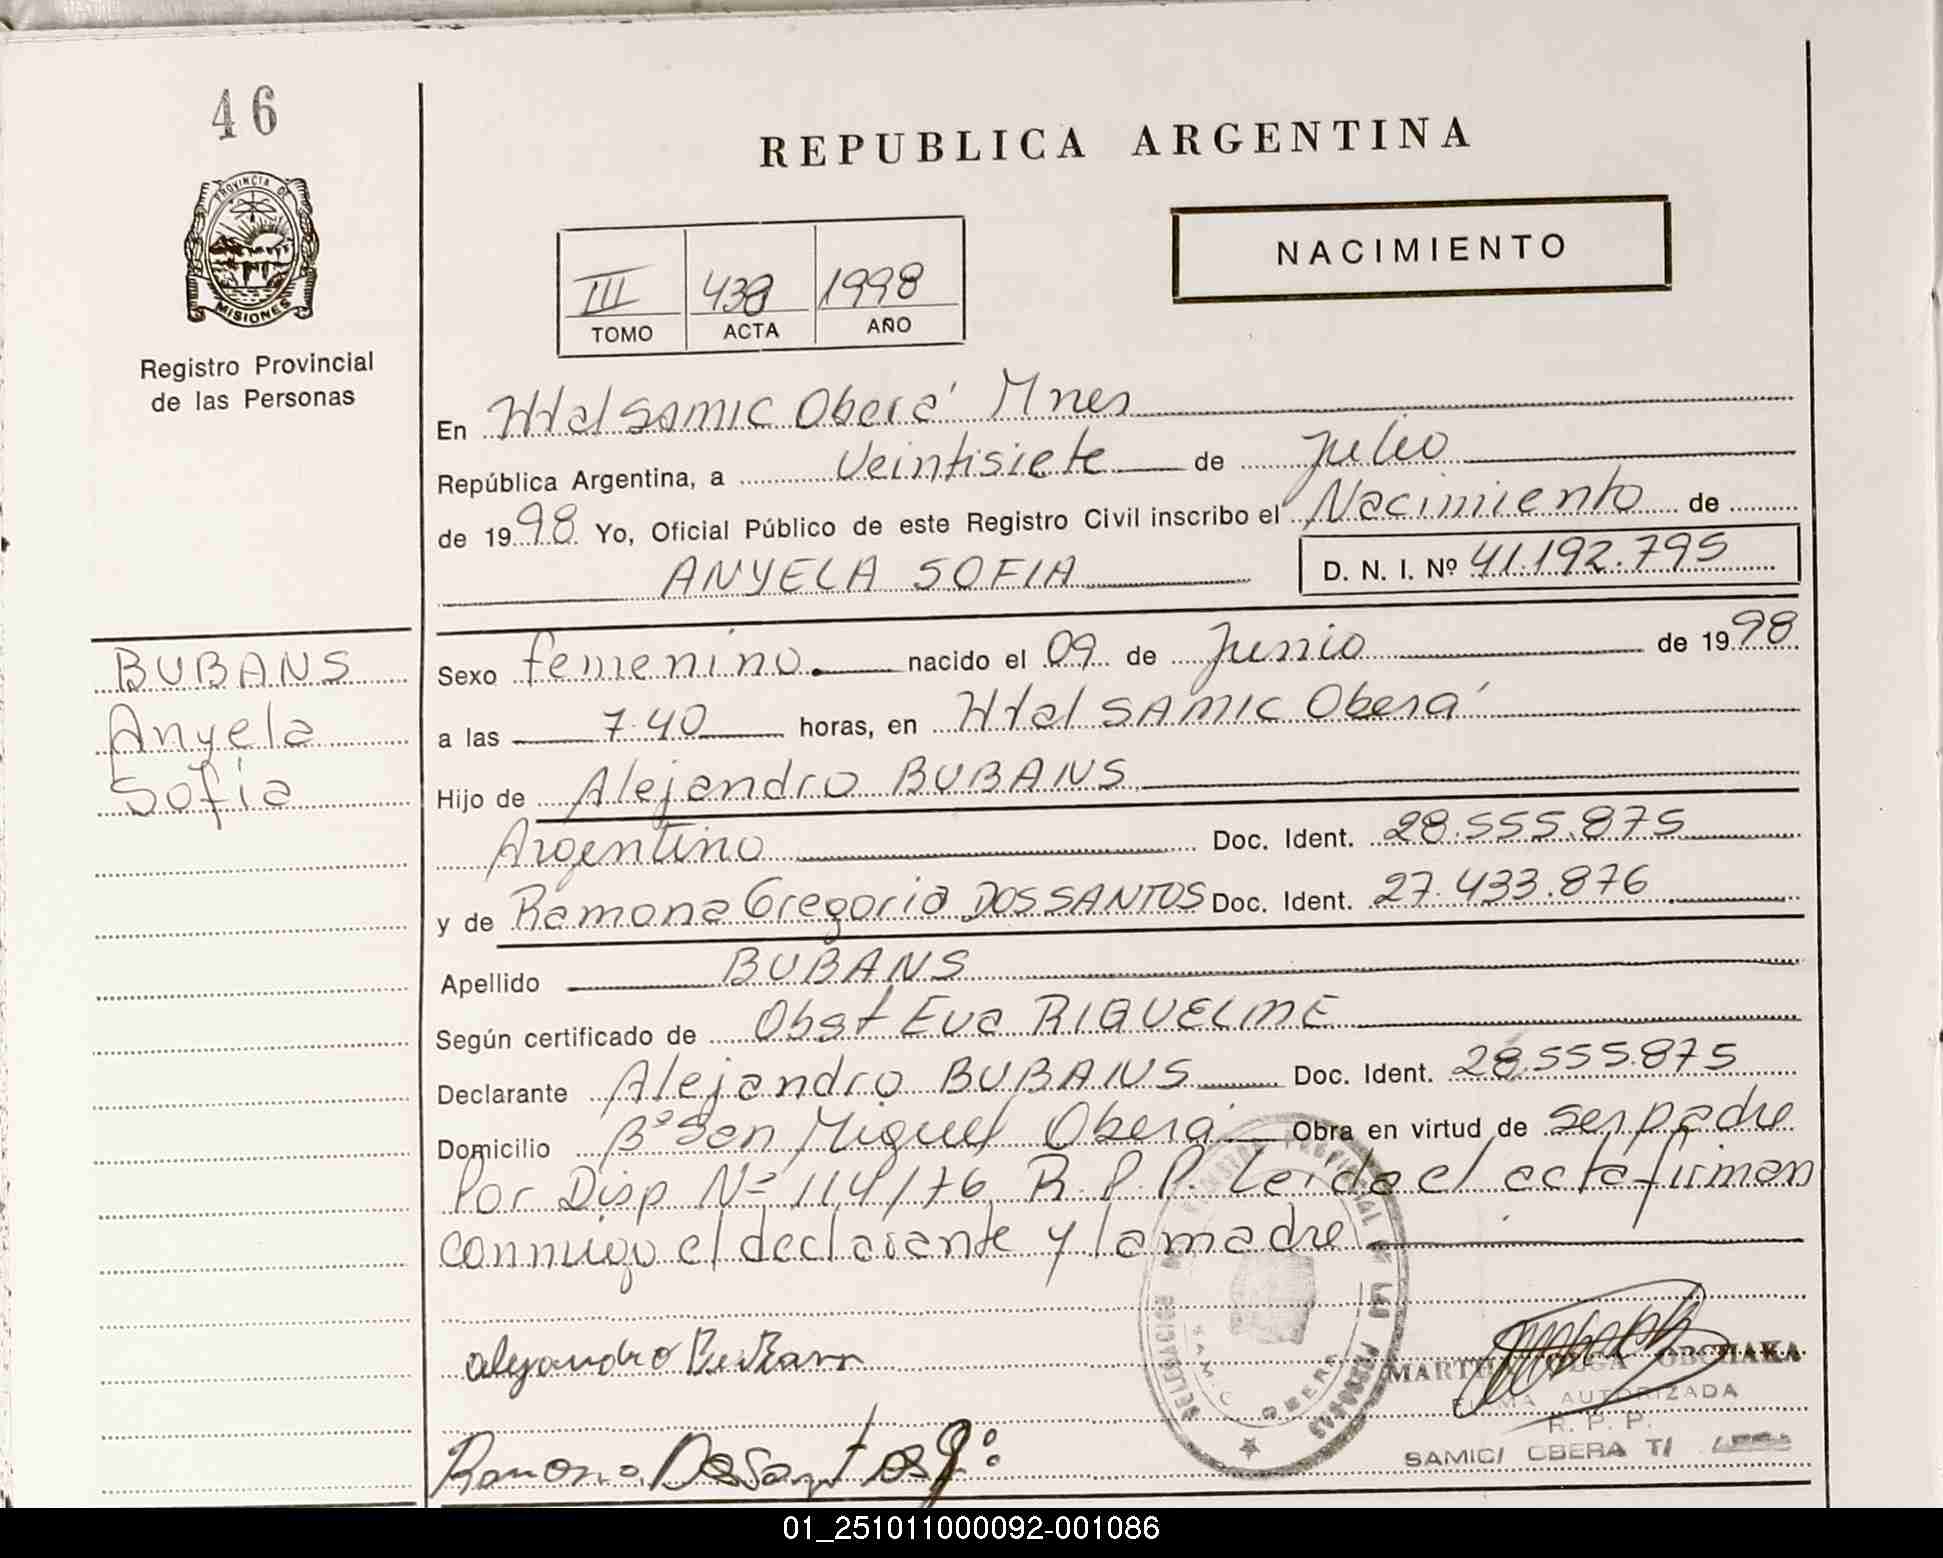 46
REPUBLICA ARGENTINA
PROVINCIA DE
MISIONES
NACIMIENTO
III 438 1998
TOMO ACTA AÑO
Registro Provincial
de las Personas
En Htal SAMIC Oberá Mnes
República Argentina, a Veintisiete de Julio
de 1998 Yo, Oficial Público de este Registro Civil inscribo el Nacimiento de
ANYELA SOFIA D. N. I. Nº 41.192.795
BUBANS
Anyela
Sofia
Sexo femenino nacido el 09 de Junio de 1998
a las 7.40 horas, en Htal SAMIC Oberá
Hijo de Alejandro BUBANS
Argentino Doc. Ident. 28.555.875
y de Ramona Gregoria DOS SANTOS Doc. Ident. 27.433.876
Apellido BUBANS
Según certificado de Obst Eva RIQUELME
Declarante Alejandro BUBANS Doc. Ident. 28.555.875
Domicilio Bº San Miguel Oberá Obra en virtud de ser padre
Por Disp Nº 114/76 R.P.P. Leída el acta firman
conmigo el declarante y la madre
alejandro
Ramona
OBERA
MARTHA OLGA OBCHAKA
FIRMA AUTORIZADA
R. P. P.
SAMIC/ OBERA
01_251011000092-001086